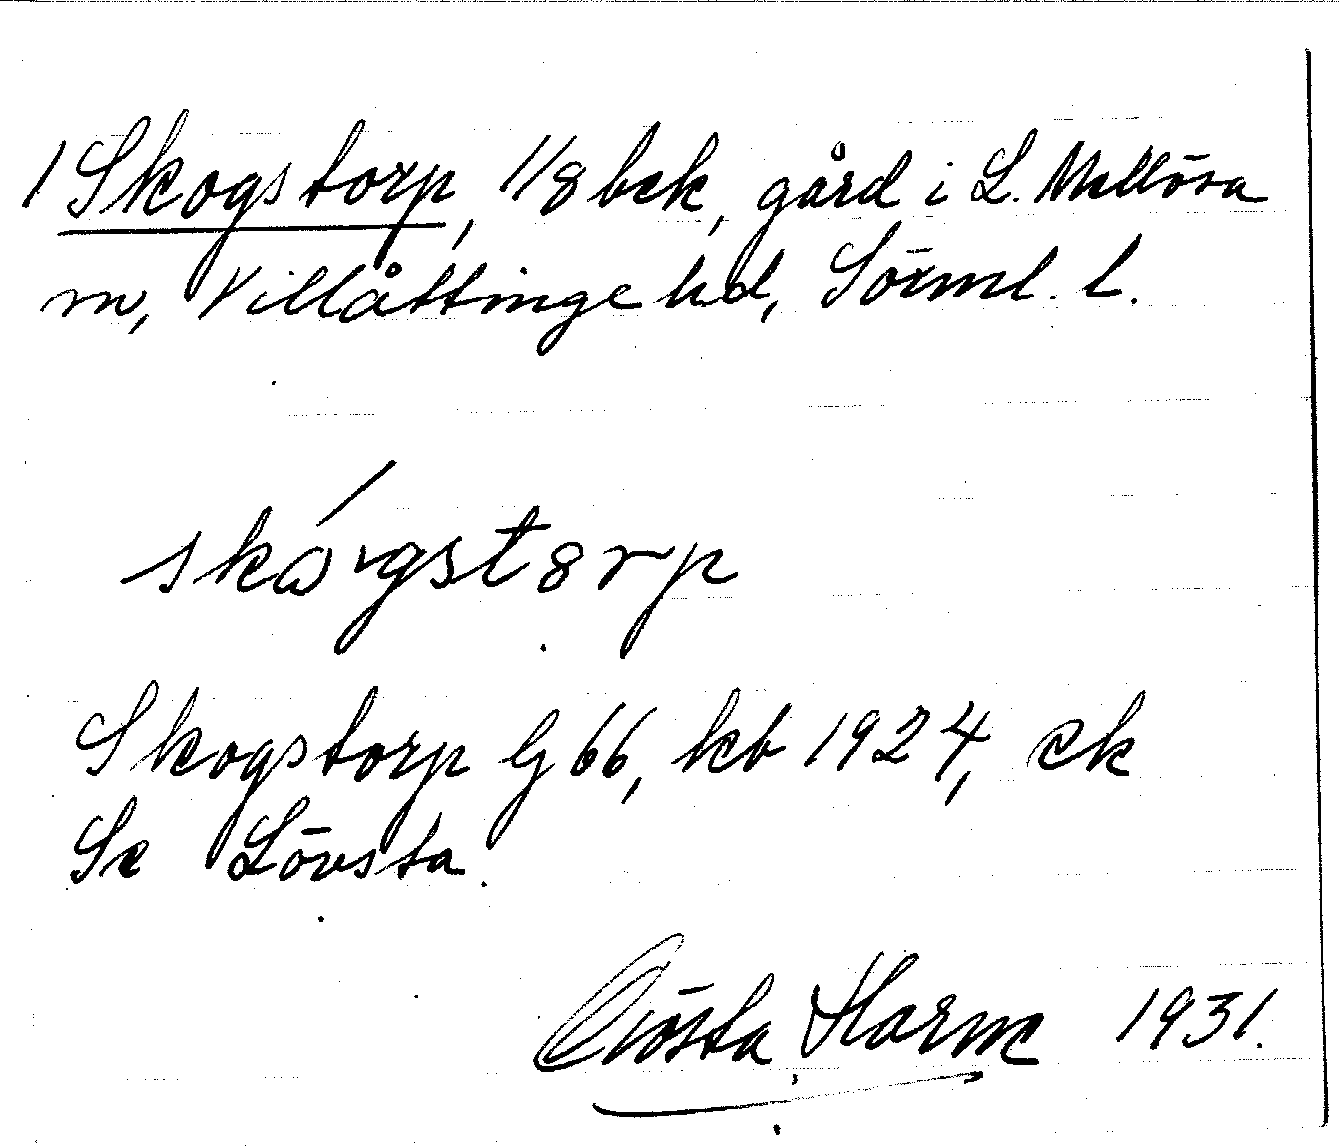 1 Skogstorp, 1/8 bck, gård i L. Mellösa
sn, Villåttinge hd, Sörml. l.
skógstorp
Skogstorp G 66, kb 1924, ek
Se Lövsta.
Gösta Harme 1931.